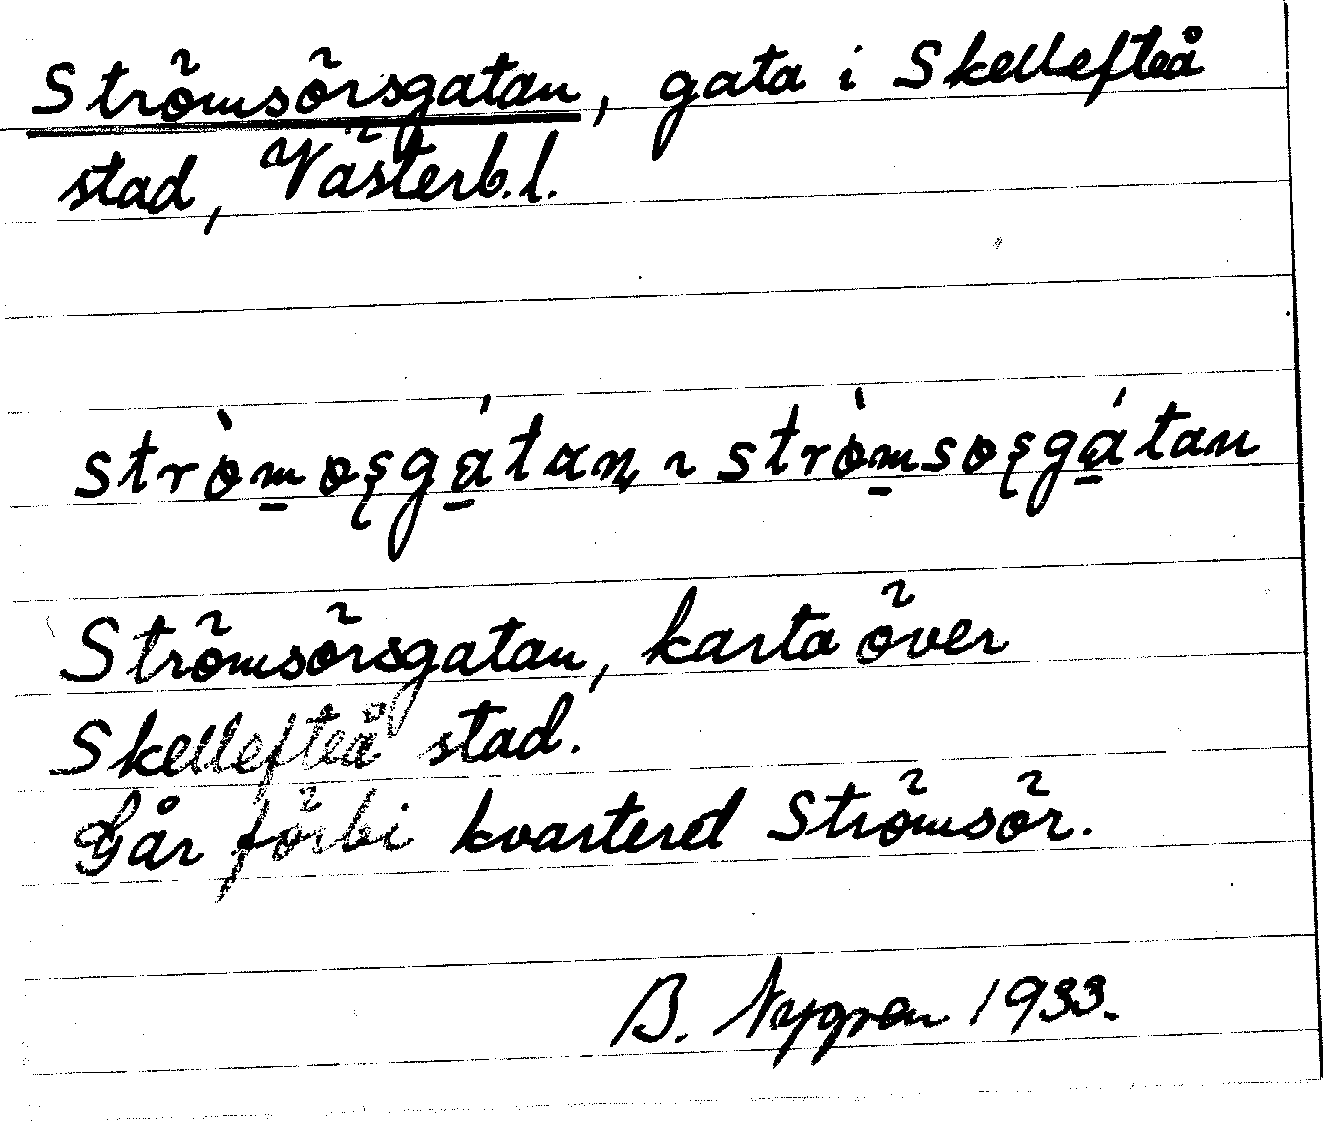 Strömsörsgatan, gata i Skellefteå
stad, Västerb.l.
strò̀m̱osgá̱tan ~ stròm̱sosgá̱tan
Strömsörsgatan, karta över
Skellefteå stad.
Går förbi kvarteret Strömsör.
B. Nygren 1933.